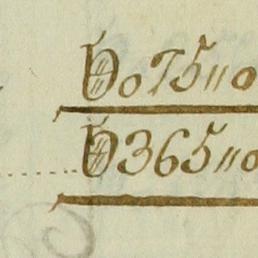 075〃0
365〃0